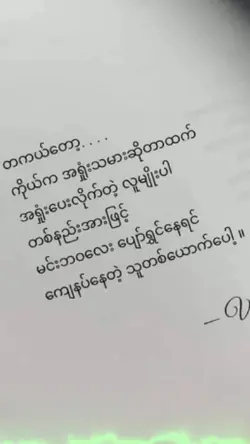 တကယ်တော့....
ကိုယ်က အရှုံးသမားဆိုတာထက်
အရှုံးပေးလိုက်တဲ့ လူမျိုးပါ
တစ်နည်းအားဖြင့်
မင်းဘဝလေး ပျော်ရွှင်နေရင်
ကျေနပ်နေတဲ့ သူတစ်ယောက်ပေါ့။